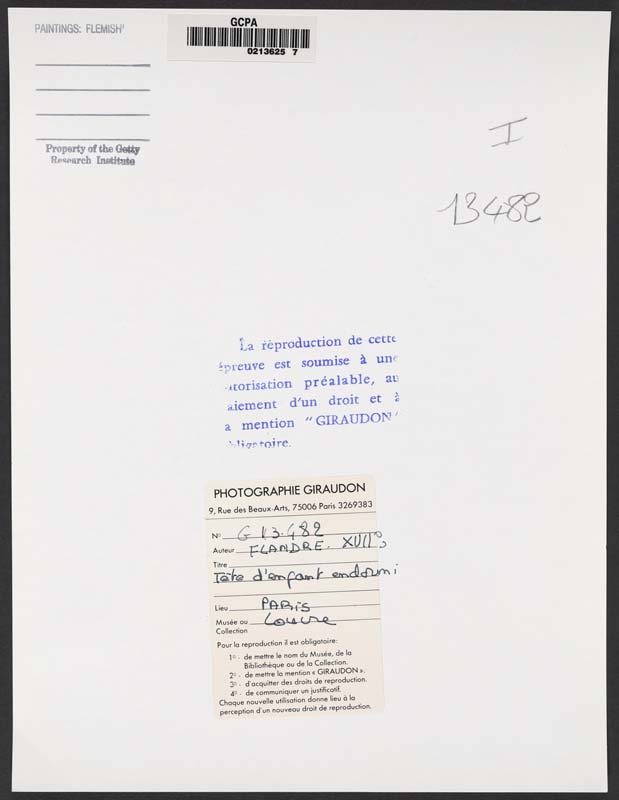 PAINTINGS: FLEMISH
GCPA
0213625 7
Property of the Getty
Research Institute
I
13482
La réproduction de cette
épreuve est soumise à une
utorisation préalable, au
aiement d'un droit et à
a mention "GIRAUDON"
bligatoire.
PHOTOGRAPHIE GIRAUDON
9, Rue des Beaux-Arts, 75006 Paris 3269383
No G 13.482
Auteur FLANDRE. XVIIº
Titre
Tête d'enfant endormi
Lieu PARIS
Musée ou Louvre
Collection
Pour la reproduction il est obligatoire:
1º - de mettre le nom du Musée, de la
Bibliothèque ou de la Collection.
2º - de mettre la mention « GIRAUDON ».
3º - d'acquitter des droits de reproduction.
4º - de communiquer un justificatif.
Chaque nouvelle utilisation donne lieu à la
perception d'un nouveau droit de reproduction.